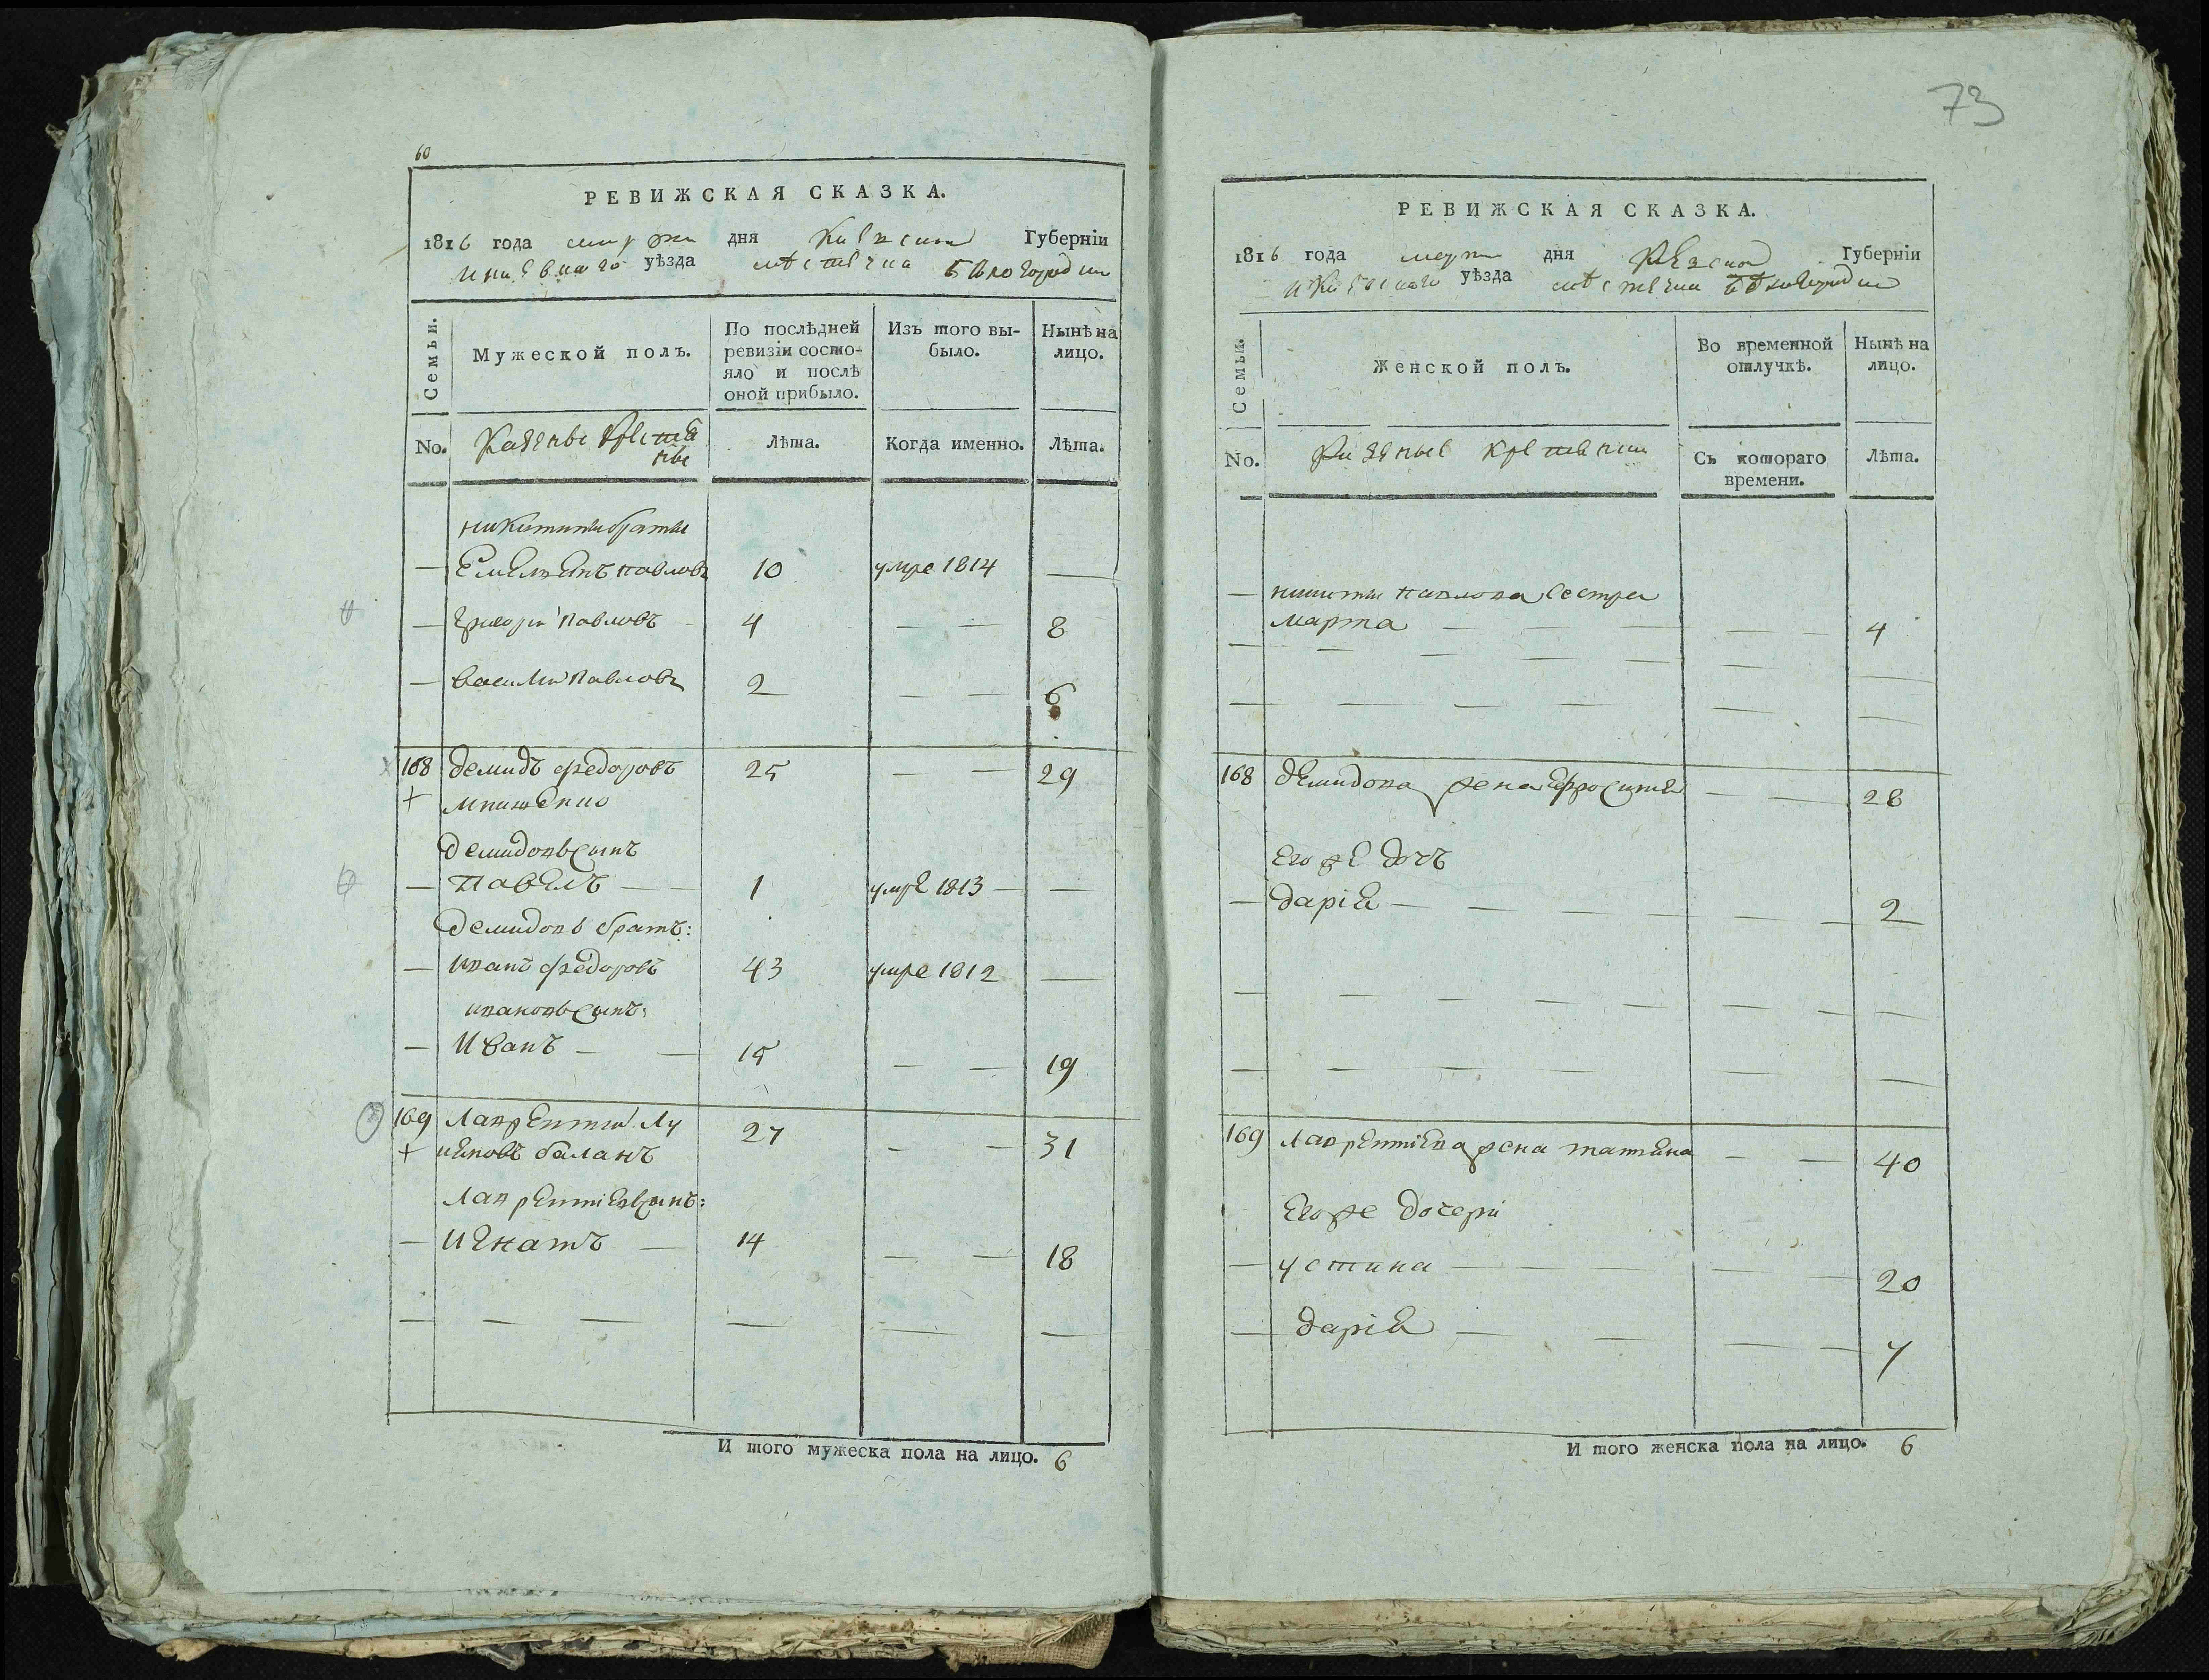 60
РЕВИЖСКАЯ СКАЗКА.
1816 года марта дня Киевской Губерніи
и Киевскаго уѣзда мѣстечка Бѣлогородки
Семьи.
Мужеской полъ.
По послѣдней ревизіи состояло и послѣ оной прибыло.
Изъ того выбыло.
Нынѣ на лицо.
No.
Казеные крестьяне
Лѣта.
Когда именно.
Лѣта.
никитины братья
— Емельянъ павловъ 10 умре 1814 —
— григорій павловъ 4 — — 8
— василій павловъ 2 — — 6
168 демидъ федоровъ 25 — — 29
+
демидовъ сынъ
— Павелъ — — 1 умре 1813 — —
демидовъ братъ:
— иванъ федоровъ 43 умре 1812 —
ивановъ сынъ:
— Иванъ — — 15 — — 19
169 лаврентій Лу 27 — — 31
+ кяновъ баланъ
лаврентіевъ сынъ:
— Игнатъ — 14 — — 18
— — — — — —
И того мужеска пола на лицо. 6
73
РЕВИЖСКАЯ СКАЗКА.
1816 года марта дня Киевской Губерніи
и Киевскаго уѣзда мѣстечка Бѣлогородки
Семьи.
Женской полъ.
Во временной отлучкѣ.
Нынѣ на лицо.
No.
Казеные крестьяне
Съ котораго времени.
Лѣта.
— никиты павлова сестра
марта — — — — — 4
— — — — — — —
— — — — — — —
168 демидова жена Ефросиния — — 28
Его же дочъ
— дарія — — — — — — 2
— — — — — — — —
— — — — — —
169 лаврентіева жена татяна — — 40
Его же дочери
— устина — — — — — 20
— дарія — — — — 7
И того женска пола на лицо. 6